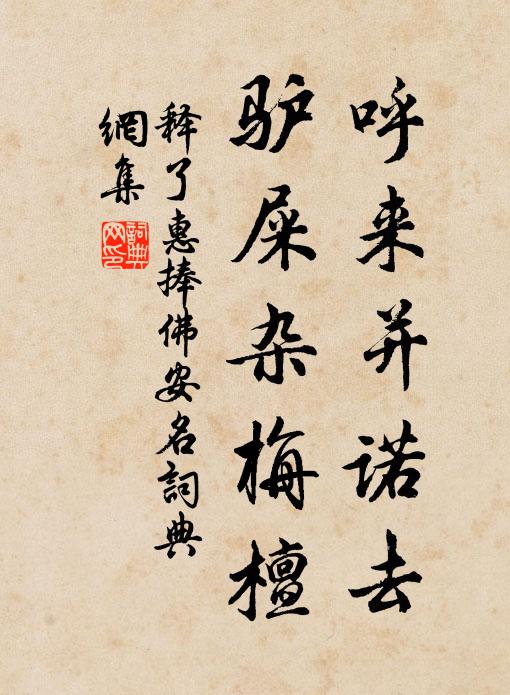 呼来并诺去
驴屎杂梅檀
释了惠捧佛安名詞典
網集
詞典网印